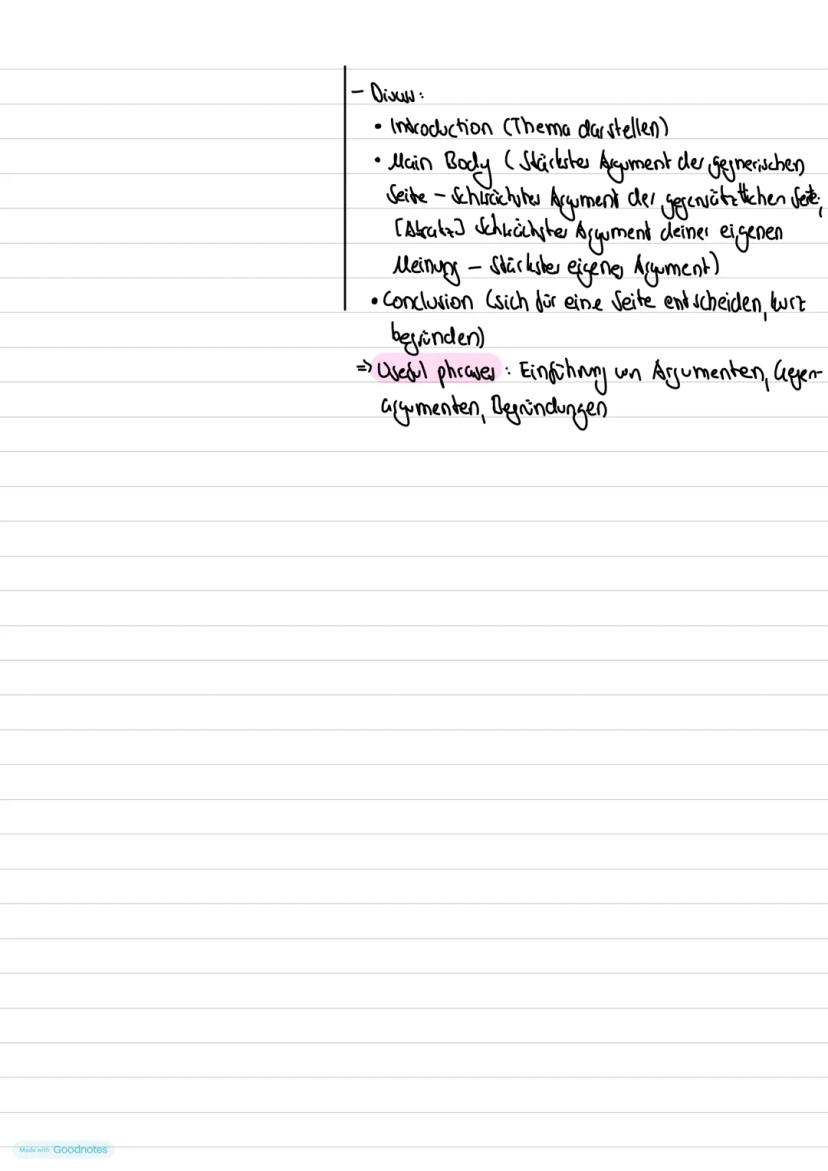 - Discuss:
• Introduction (Thema darstellen)
• Main Body (Stärkstes Argument der gegnerischen
Seite - Schwächstes Argument der gegensätzlichen Seite,
[Absatz] Schwächstes Argument deiner eigenen
Meinung - Stärkstes eigenes Argument)
• Conclusion (sich für eine Seite entscheiden, kurz
begründen)
=> Useful phrases: Einführung von Argumenten, Gegen-
argumenten, Begründungen
Made with Goodnotes